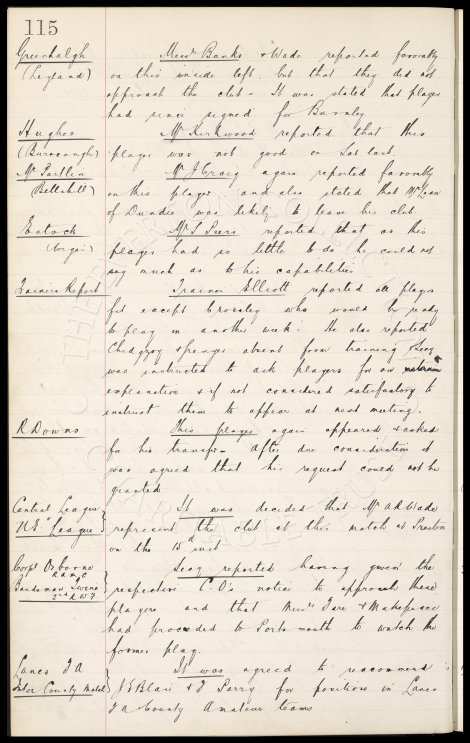 115
Greenhalgh Messrs Banks & Wade reported favorably
(Leyland) on this inside left. but that they did not
approach the club. It was stated that player
had since signed for Burnley
Hughes Mr Kirkwood reported that this
(Burscough) player was not good on Sat last.
Mr J Craig again reported favorably
(Bellshill) on this player and also stated that
of Dundee was likely to leave his club.
Eatock Mr T Peers reported, that as his
player had so little to do, he could not
say much as to his capabilities
Trainers Report Trainer Elliott reported all players
fit except Crossley who would be ready
to play in another week. He also reported
Chedgzoy & absent from training Secy
was instructed to ask players for an
explanation & if not considered satisfactory to
instruct them to appear at next meeting.
R Downs This player again appeared & asked
for his transfer. After due consideration it
was agreed that his request could not be
granted
Central League It was decided that Mr A R Wade
League represent the club at this match at Preston
on the 15th inst
Corpl Osborne Secy reported having given the
R A M C
Bandsman respective C.O's notice to approach these
2nd R W F
players and that Messrs & Makepeace
had proceeded to Portsmouth to watch the
former play.
Lancs F A It was agreed to recommend
Inter County Match J S Blair & J Parry for positions in Lancs
F A County Amateur teams